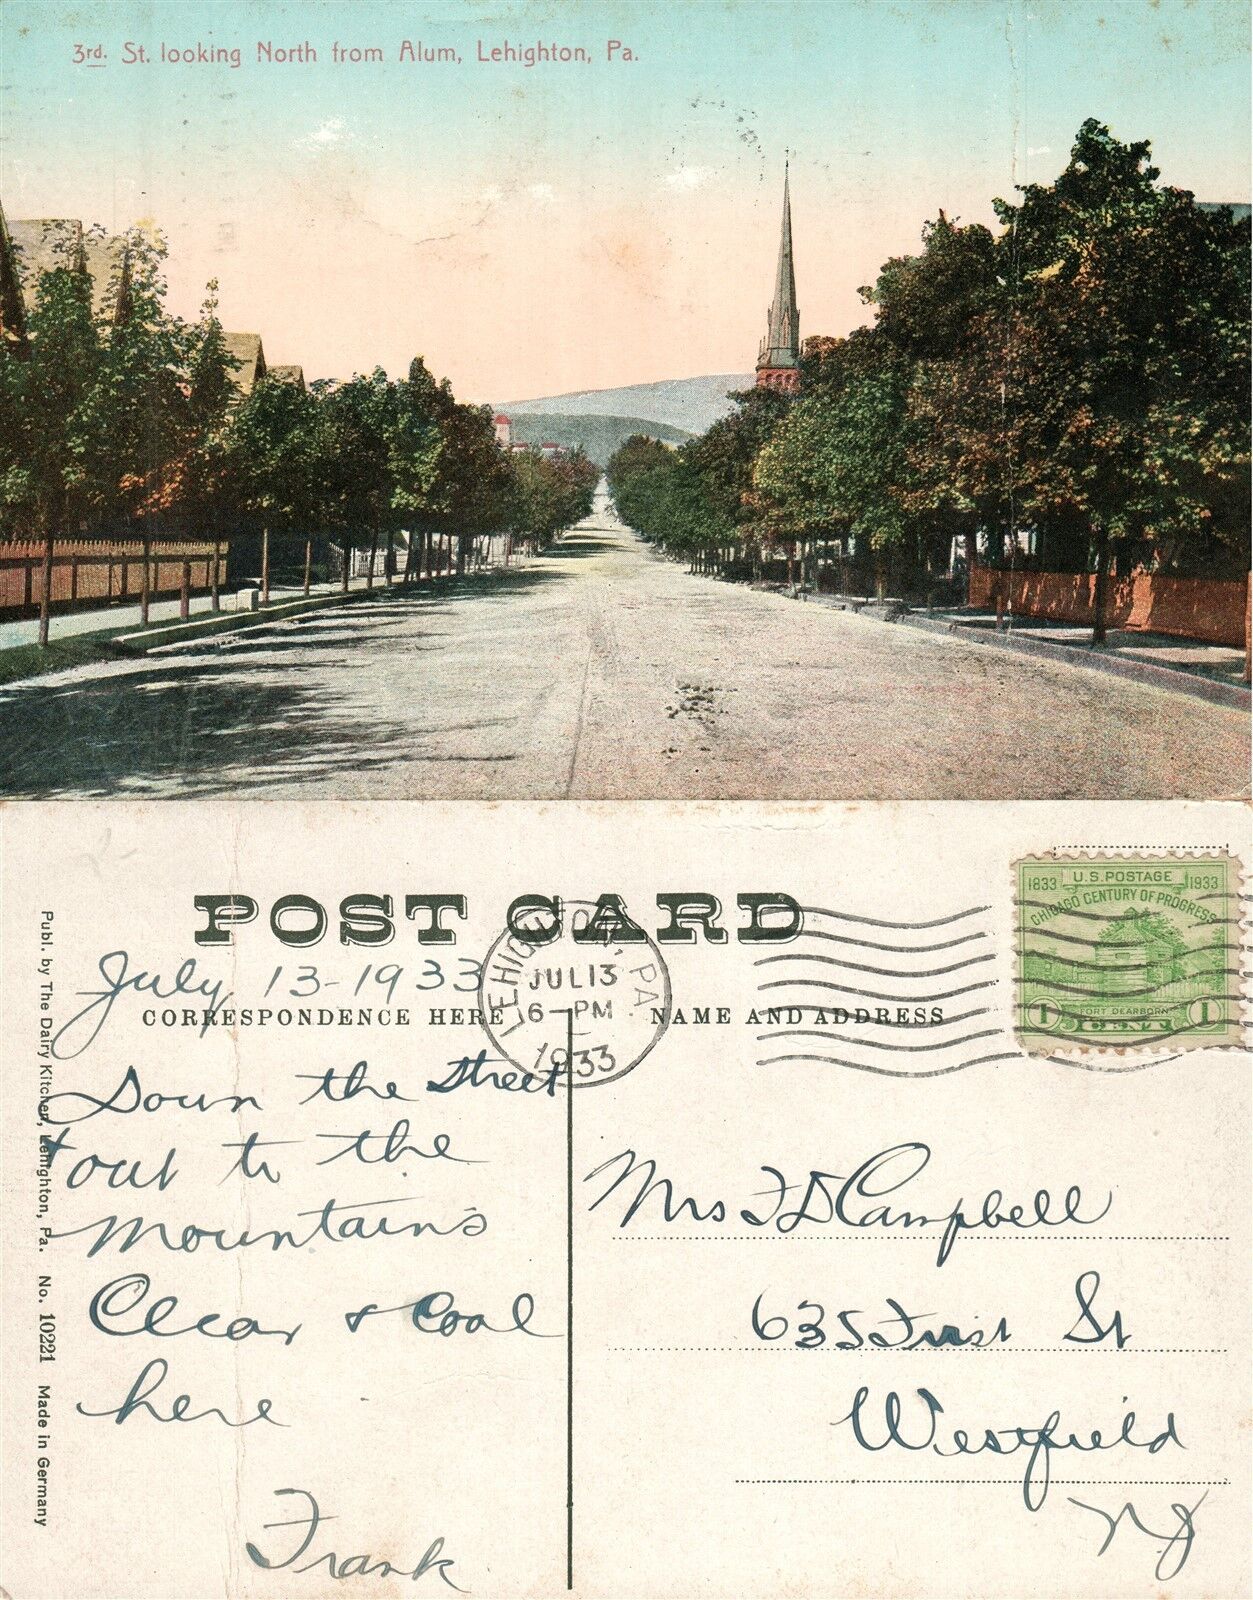 3rd. St. looking North from Alum, Lehighton, Pa.
POST CARD
July 13-1933
CORRESPONDENCE HERE
NAME AND ADDRESS
LEHIGHTON, PA.
JUL 13
6-PM
1933
1833 U.S. POSTAGE 1933
CHICAGO CENTURY OF PROGRESS
FORT DEARBORN
1 CENT 1
Down the Street
+ out to the
Mountains
Clear & Cool
here
Frank
Mrs F D Campbell
635 First St
Westfield
NJ
Publ. by The Dairy Kitchen, Lehighton, Pa. No. 10221 Made in Germany